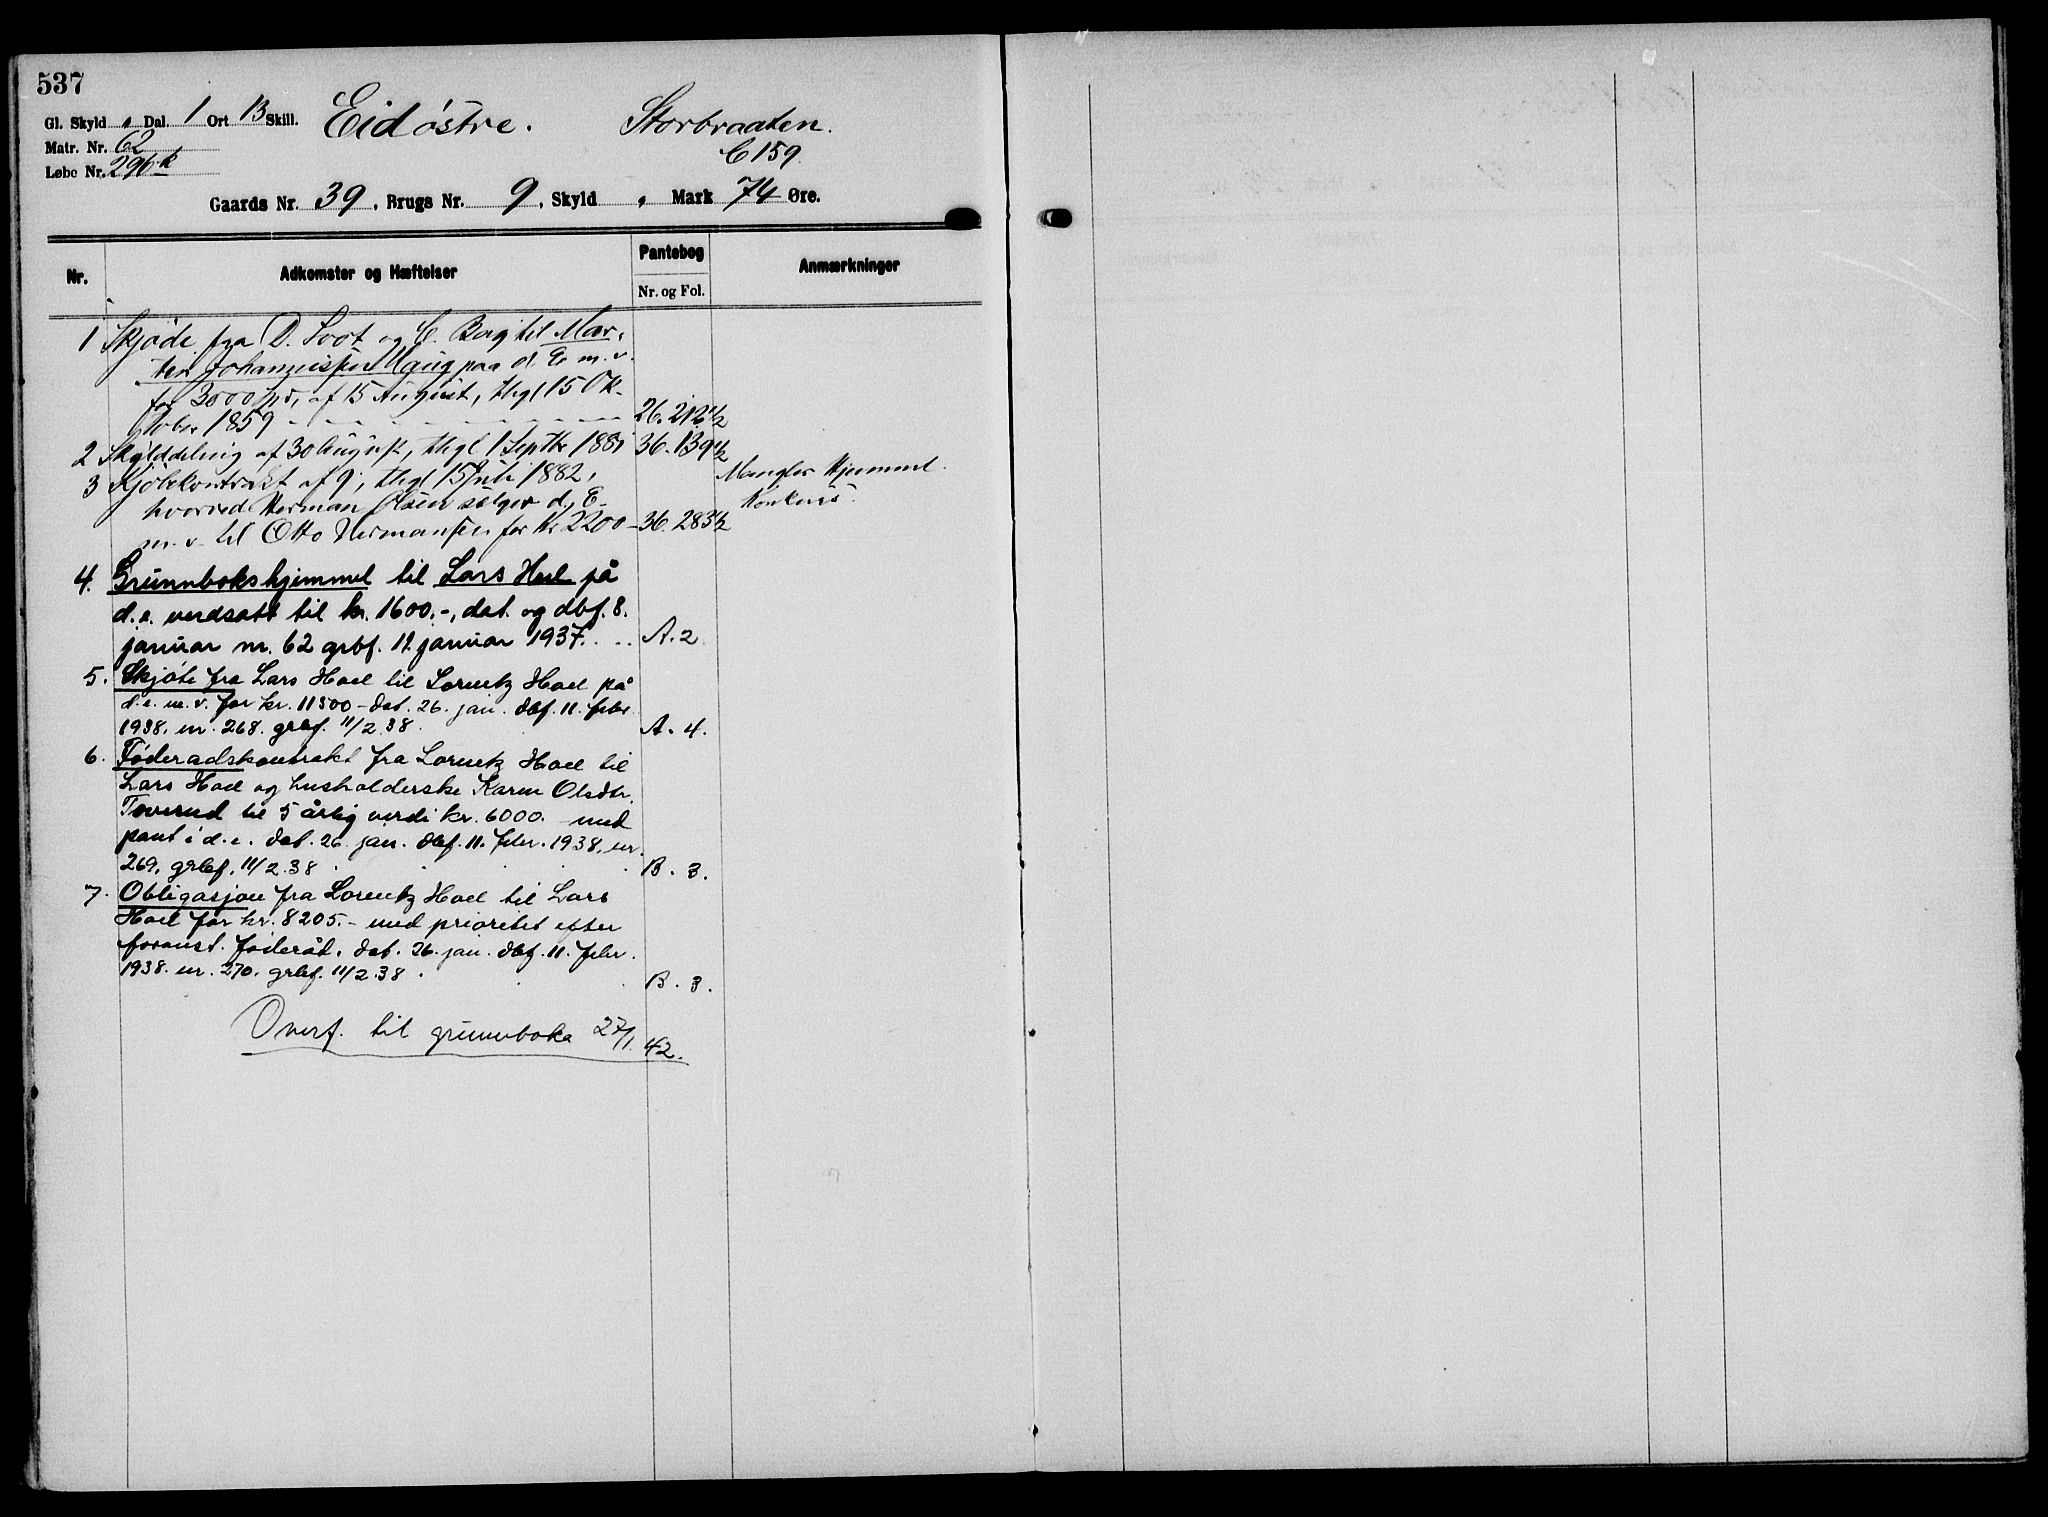 537
Gl. Skyld „ Dal. 1 Ort 13 Skill. Eid østre. Storbraaten.
Matr. Nr. 62
C 159
Løbe Nr. 296 k
Gaards Nr. 39, Brugs Nr. 9, Skyld „ Mark 74 Øre.
Nr. Adkomster og Hæftelser Pantebog Anmærkninger
Nr. og Fol.
1 Skjøde fra D. Soot og C. Borg til Mar-
ten Johannessen Haug paa d. E. m. v.
for 3000 Spd, af 15 August, thgl 15 Ok-
tober 1859 26. 212 1/2
2 Skylddeling af 30 August, thgl 1 Septbr 1881 36. 139 1/2
3 Kjøbekontrakt af 9, thgl 15 Juli 1882, Mangler Hjemmel.
hvorved Herman Olsen sælger d. E. Konkurs.
m. v. til Otto Hermansen for Kr 2200 – 36. 283 1/2
4. Grunnbokshjemmel til Lars Hoel på
d. e. verdsatt til kr. 1600.-, dat. og dbf. 8.
januar nr. 62 grbf. 11. januar 1937. A. 2.
5. Skjøte fra Lars Hoel til Lorentz Hoel på
d. e. m. v. for kr. 11500 – dat. 26. jan. dbf. 11. febr.
1938. nr. 268. grbf. 11/2.38. A. 4.
6. Føderadskontrakt fra Lorentz Hoel til
Lars Hoel og husholderske Karen Olsdtr.
Toverud til 5 årlig verdi kr. 6000.- med
pant i d. e. dat. 26. jan. dbf. 11. febr. 1938. nr.
269. grbf. 11/2.38 B. 3.
7. Obligasjon fra Lorentz Hoel til Lars
Hoel for kr. 8205.- med prioritet efter
foranst. føderåd. dat. 26. jan. dbf. 11. febr.
1938. nr. 270. grbf. 11/2.38. B. 3.
Overf. til grunnboka 27/1. 42.